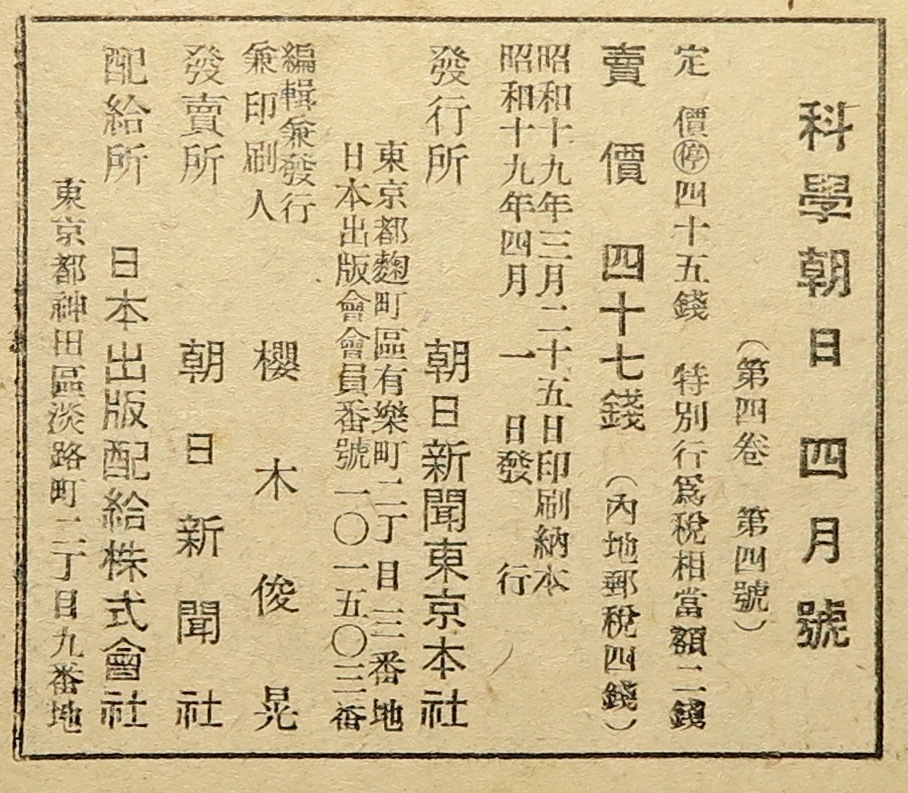 科學朝日 四月號
(第四卷 第四號)
定價㊝四十五錢 特別行爲稅相當額二錢
賣價 四十七錢 (內地郵稅四錢)
昭和十九年三月二十五日印刷納本
昭和十九年四月 一 日發 行
發行所 朝日新聞東京本社
東京都麴町區有樂町二丁目三番地
日本出版會會員番號一〇一五〇三番
編輯兼發行
兼印刷人 櫻木俊晃
發賣所 朝日新聞社
配給所 日本出版配給株式會社
東京都神田區淡路町二丁目九番地